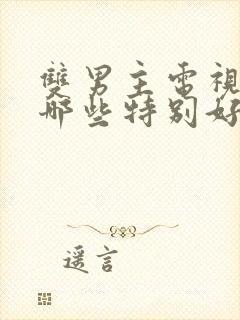 雙男主電視
哪些特別好
遥言